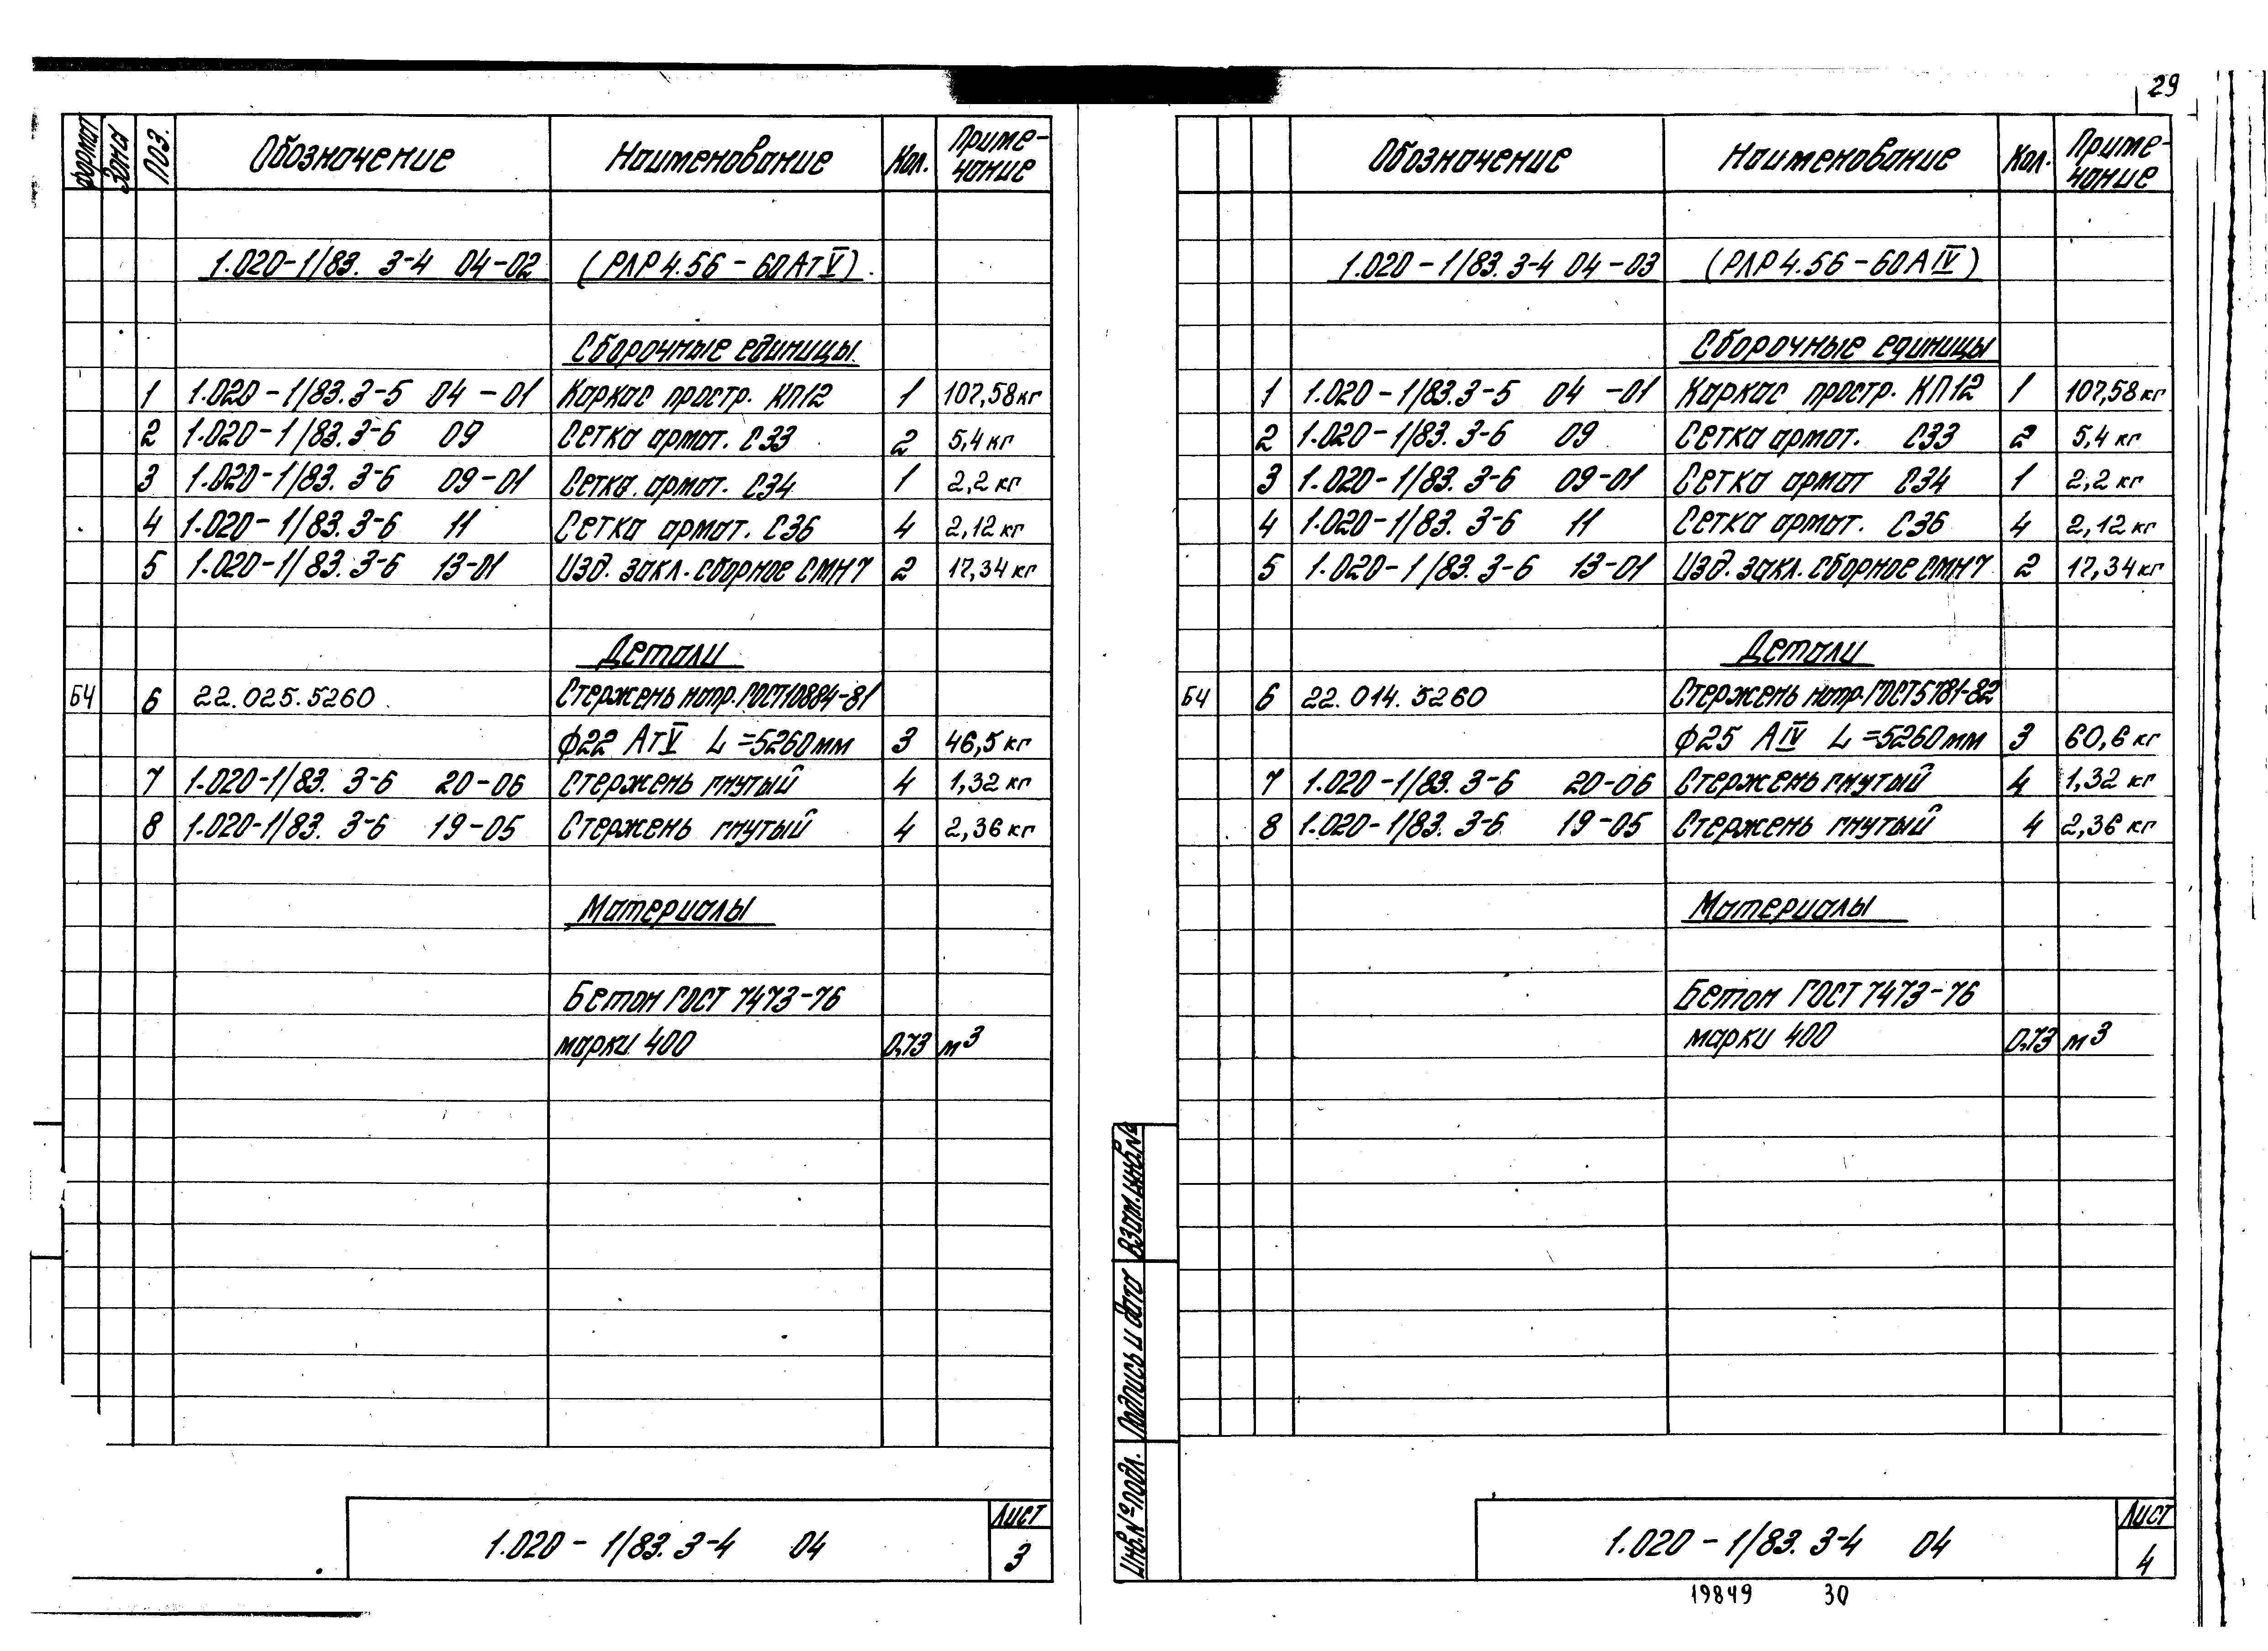 29
формат Зона Поз. Обозначение Наименование Кол. Приме-
чание
1.020-1/83. 3-4 04-02 (РЛР4.56-60АтV)
Сборочные единицы
1 1.020-1/83.3-5 04-01 Каркас простр. КП12 1 107,58кг
2 1.020-1/83. 3-6 09 Сетка армат. С33 2 5,4 кг
3 1.020-1/83. 3-6 09-01 Сетка. армат. С34 1 2,2 кг
4 1.020-1/83. 3-6 11 Сетка армат. С36 4 2,12 кг
5 1.020-1/83. 3-6 13-01 Изд. закл. сборное СМН7 2 17,34 кг
Детали
БЧ 6 22.025.5260 Стержень напр. ГОСТ10884-81
ф22 АтV L=5260мм 3 46,5 кг
7 1.020-1/83. 3-6 20-06 Стержень гнутый 4 1,32 кг
8 1.020-1/83. 3-6 19-05 Стержень гнутый 4 2,36 кг
Материалы
Бетон ГОСТ 7473-76
марки 400 0,73 м³
1.020-1/83. 3-4 04
Лист
3
Обозначение Наименование Кол. Приме-
чание
1.020-1/83. 3-4 04-03 (РЛР4.56-60АIV)
Сборочные единицы
1 1.020-1/83.3-5 04-01 Каркас простр. КП12 1 107,58 кг
2 1.020-1/83. 3-6 09 Сетка армат. С33 2 5,4 кг
3 1.020-1/83. 3-6 09-01 Сетка армат С34 1 2,2 кг
4 1.020-1/83. 3-6 11 Сетка армат. С36 4 2,12 кг
5 1.020-1/83. 3-6 13-01 Изд. закл. сборное СМН7 2 17,34 кг
Детали
БЧ 6 22.014.5260 Стержень напр. ГОСТ5781-82
ф25 АIV L=5260мм 3 60,6 кг
7 1.020-1/83. 3-6 20-06 Стержень гнутый 4 1,32 кг
8 1.020-1/83. 3-6 19-05 Стержень гнутый 4 2,36 кг
Материалы
Бетон ГОСТ 7473-76
марки 400 0,73 м³
Взам.инв.№
Подпись и дата
Инв.№ подл.
1.020-1/83. 3-4 04
Лист
4
19849 30